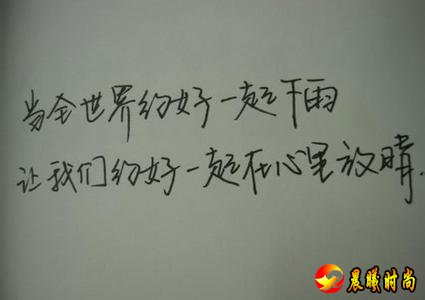 当全世界约好一起下雨
让我们约好一起在心里放晴.
晨曦时尚